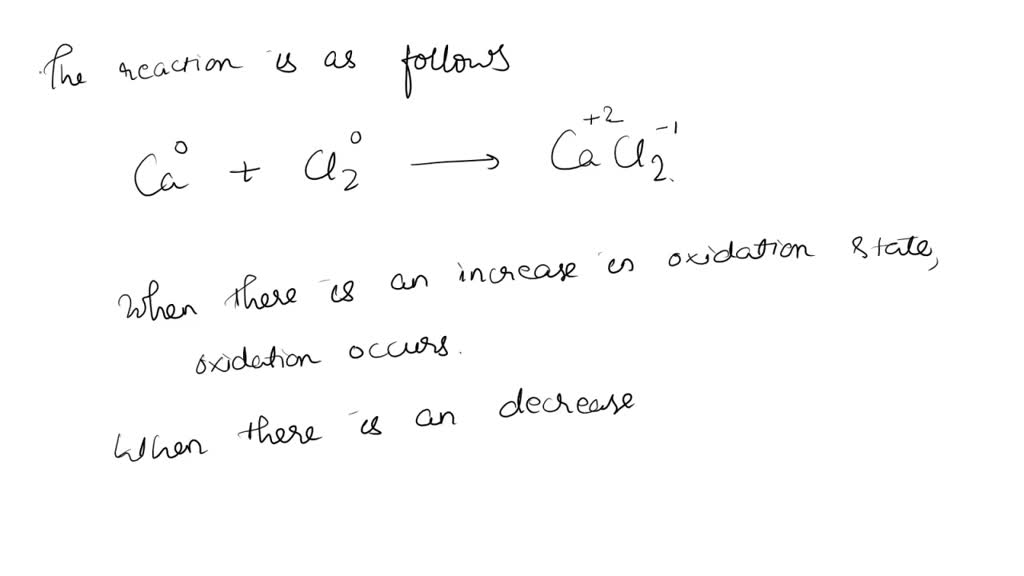 The reaction is as follows
Ca⁰ + Cl₂⁰ → Ca⁺²Cl₂⁻¹.
When there is an increase in oxidation state,
oxidation occurs.
When there is an decrease